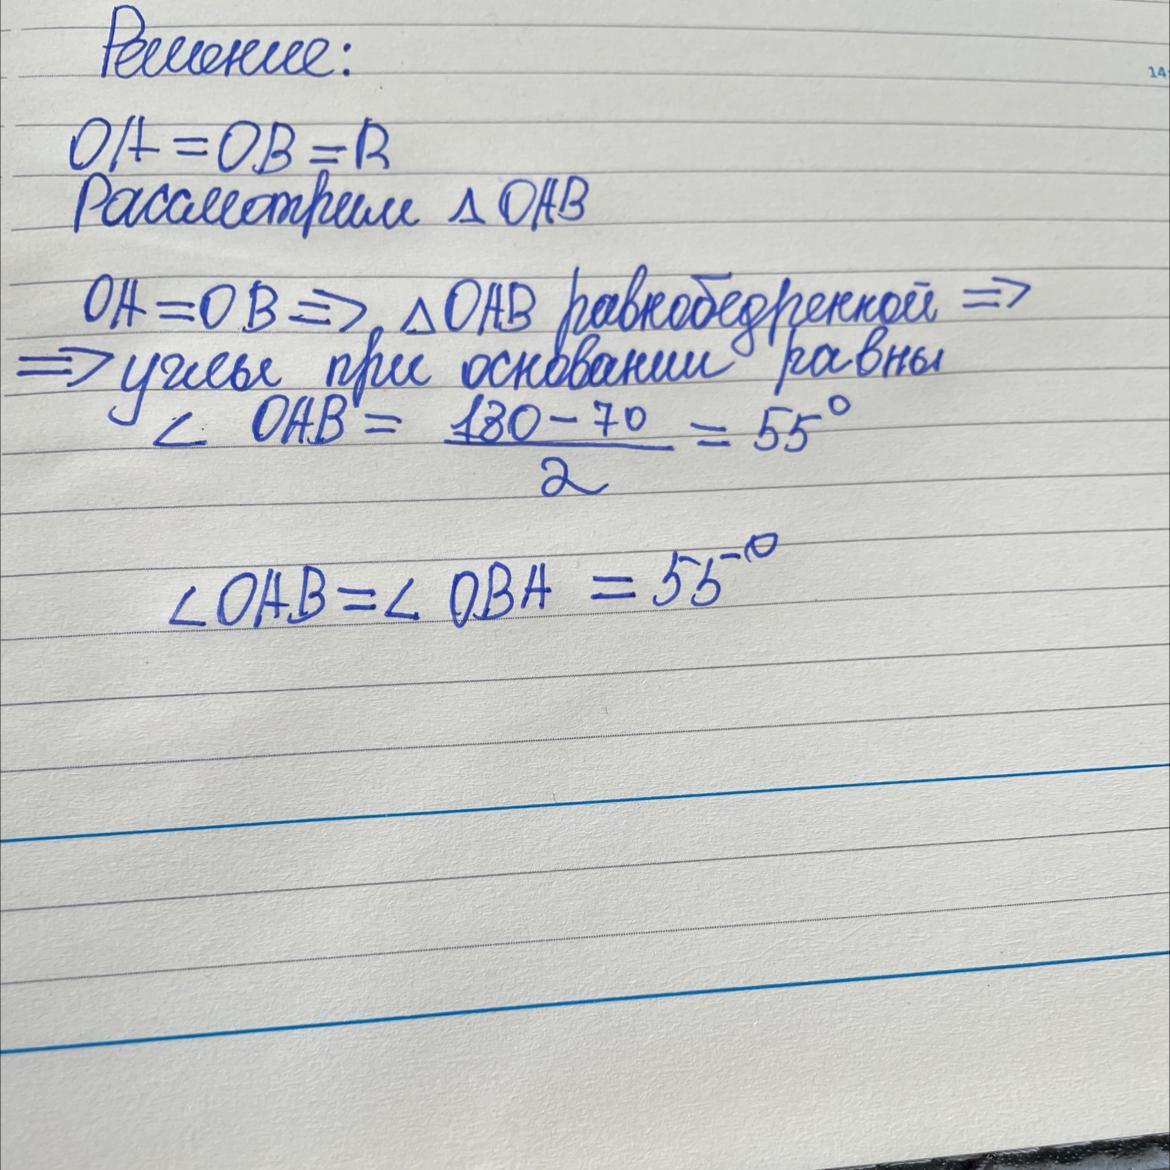 14
Решение:
OA = OB = R
Рассмотрим △ OAB
OA = OB => △ OAB равнобедренной =>
=> углы при основании равны
∠ OAB = 180 - 70 / 2 = 55°
∠OAB = ∠ OBA = 55°